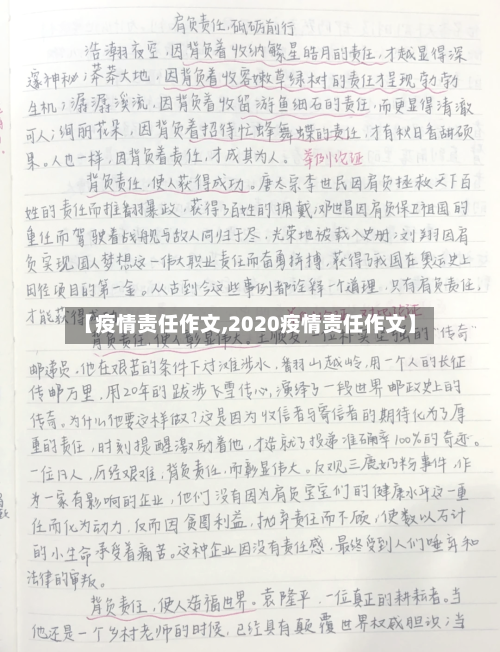 肩负责任,砥砺前行
浩瀚夜空,因背负着收纳繁星皓月的责任,才越显得深
邃神秘;莽莽大地,因背负着收容嫩草绿树的责任才呈现勃勃
生机;潺潺溪流,因背负着收留游鱼细石的责任,而更显得清澈
可人;绚丽花朵,因背负着招待忙蜂舞蝶的责任,才有秋日香甜硕
果。人也一样,因背负着责任,才成其为人。 举例论证
背负责任,使人获得成功。唐太宗李世民因肩负拯救天下百
姓的责任而推翻暴政,获得了百姓的拥戴;邓世昌因肩负保卫祖国的
重任而驾驶着战舰与敌人同归于尽,光荣地被载入史册;刘翔因肩
负实现国人梦想这一伟大职业责任而奋勇拼搏,获得了我国在奥运史上
田径项目的第一金。从古到今这些事例都诠释一个道理,只有肩负责任,
才能获得
【疫情责任作文,2020疫情责任作文】
背负责任,使人彰显伟大。王顺友,一位朴实坚强的“传奇”
邮递员,他在艰苦的条件下对滩涉水,翻山越岭,用一个人的长征
传邮万里,用20年的跋涉飞雪传心,演绎了一段世界邮政史上的
传奇。为什么他要这样做?这是因为收信者与寄信者的期待化为了厚
重的责任,时刻提醒激励着他,才造就了投递准确率100%的奇迹。
一位凡人,历经艰难,背负责任,而彰显伟大。反观三鹿奶粉事件,作
为一家有影响的企业,他们没有因为肩负宝宝们的健康水平这一重
任而化为动力,反而因贪图利益,抛弃责任而不顾,使数以万计
的小生命承受着痛苦。这种企业因没有责任感,最终受到人们唾弃和
法律的审叛。
背负责任,使人造福世界。袁隆平,一位真正的耕耘者。当
他还是一个乡村老师的时候,已经具有颠覆世界权威胆识;当